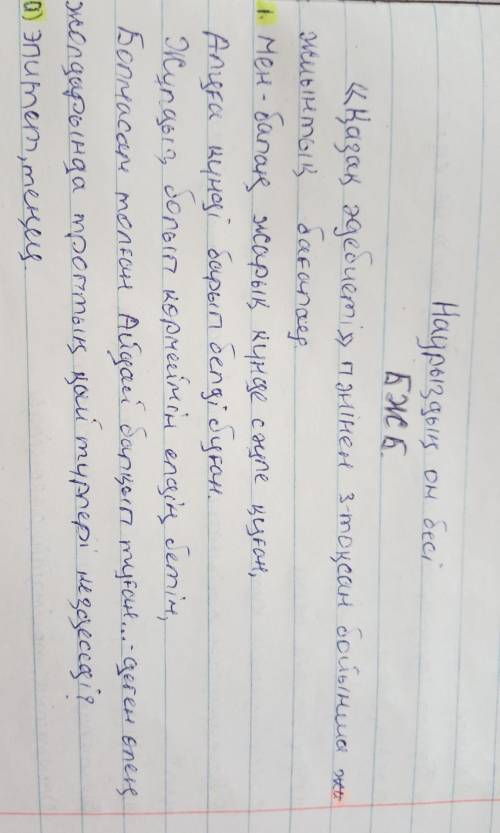 Наурыздың он бесі
БЖБ.
«Қазақ әдебиеті» пәнінен 3-тоқсан бойынша жи
жиынтық бағалаер
1. Мен - балаң жарық күнде сәуле қуған,
Алуға күнді барып белді буған.
Жұлдыз, болып көрмеймін елдің бетін,
Болмасам толған Айдай балқып туған... - деген өлең
жолдарында троптың қай түрлері кездеседі?
а) эпитет, теңеу.